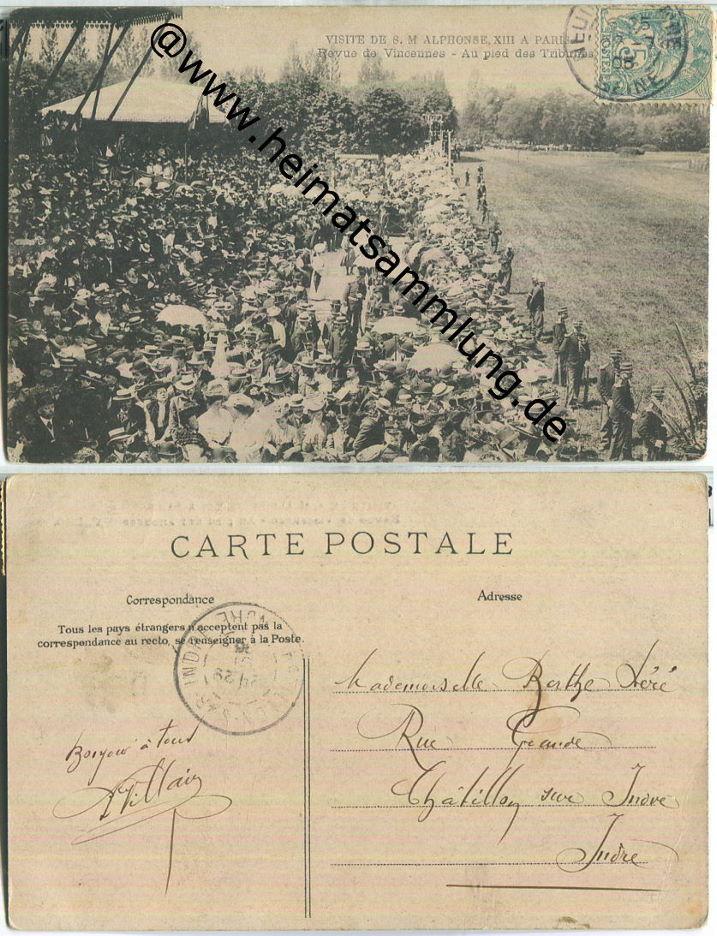 VISITE DE S. M ALPHONSE, XIII A PARIS
Revue de Vincennes - Au pied des Tribunes
SEINE
@www.heimatsammlung.de
CARTE POSTALE
Correspondance
Adresse
Tous les pays étrangers n'acceptent pas la
correspondance au recto, se renseigner à la Poste.
Mademoiselle Berthe
Rue Grande
Châtillon sur Indre
Indre
Bonjour à tous
AVillain